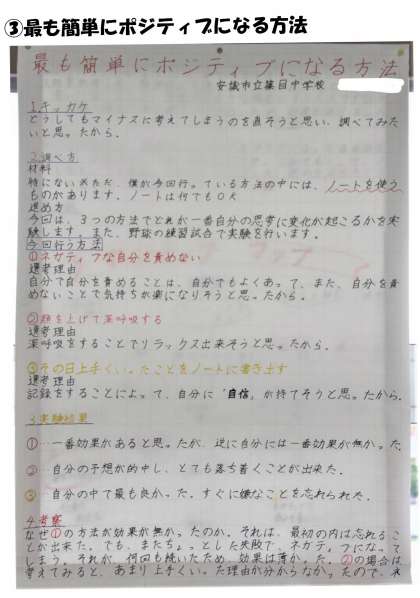 ③最も簡単にポジティブになる方法
最も簡単にポジティブになる方法
安城市立篠目中学校
1.キッカケ
どうしてもマイナスに考えてしまうのを直そうと思い、調べてみた
いと思ったから。
2.調べ方
材料
特にない。ただ、僕が今回行っている方法の中には、ノートを使う
ものがあります。ノートは何でもOK
進め方
今回は、3つの方法でどれが一番自分の思考に変化が起こるかを実
験します。また、野球の練習試合で実験を行います。
今回行う方法
①ネガティブな自分を責めない
選考理由
自分で自分を責めることは、自分でもよくあって、また、自分を責
めないことで気持ちが楽になりそうと思ったから。
②顔を上げて深呼吸する
選考理由
深呼吸をすることでリラックス出来そうと思ったから。
③その日上手くいったことをノートに書き出す
選考理由
記録をすることによって、自分に「自信」が持てそうと思ったから。
3.実験結果
①…一番効果があると思ったが、逆に自分には一番効果が無かった。
②…自分の予想が的中し、とても落ち着くことが出来た。
③…自分の中で最も良かった。すぐに嫌なことを忘れられた。
4.考察
なぜ①の方法が効果が無かったのか。それは、最初の内は忘れるこ
とが出来た。でも、またちょっとした失敗で、ネガティブになって
しまう。それが、何回も続いたため、効果は薄かった。②の場合は
考えてみると、あまり上手くいった理由が分からなかったので、